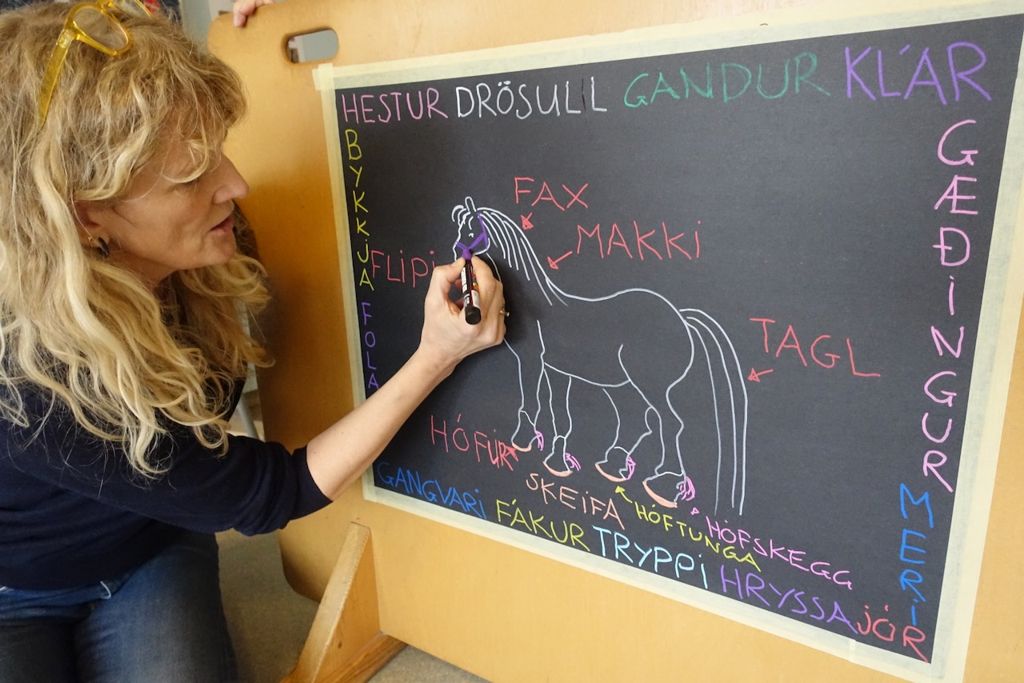 HESTUR DRÖSULL GANDUR KLÁR
BYKKJA
FOLA
GÆÐINGUR
MERI
FAX
MAKKI
FLIPI
TAGL
HÓFUR
SKEIFA
HÓFTUNGA
HÓFSKEGG
GANGVARI FÁKUR TRYPPI HRYSSA JÓR